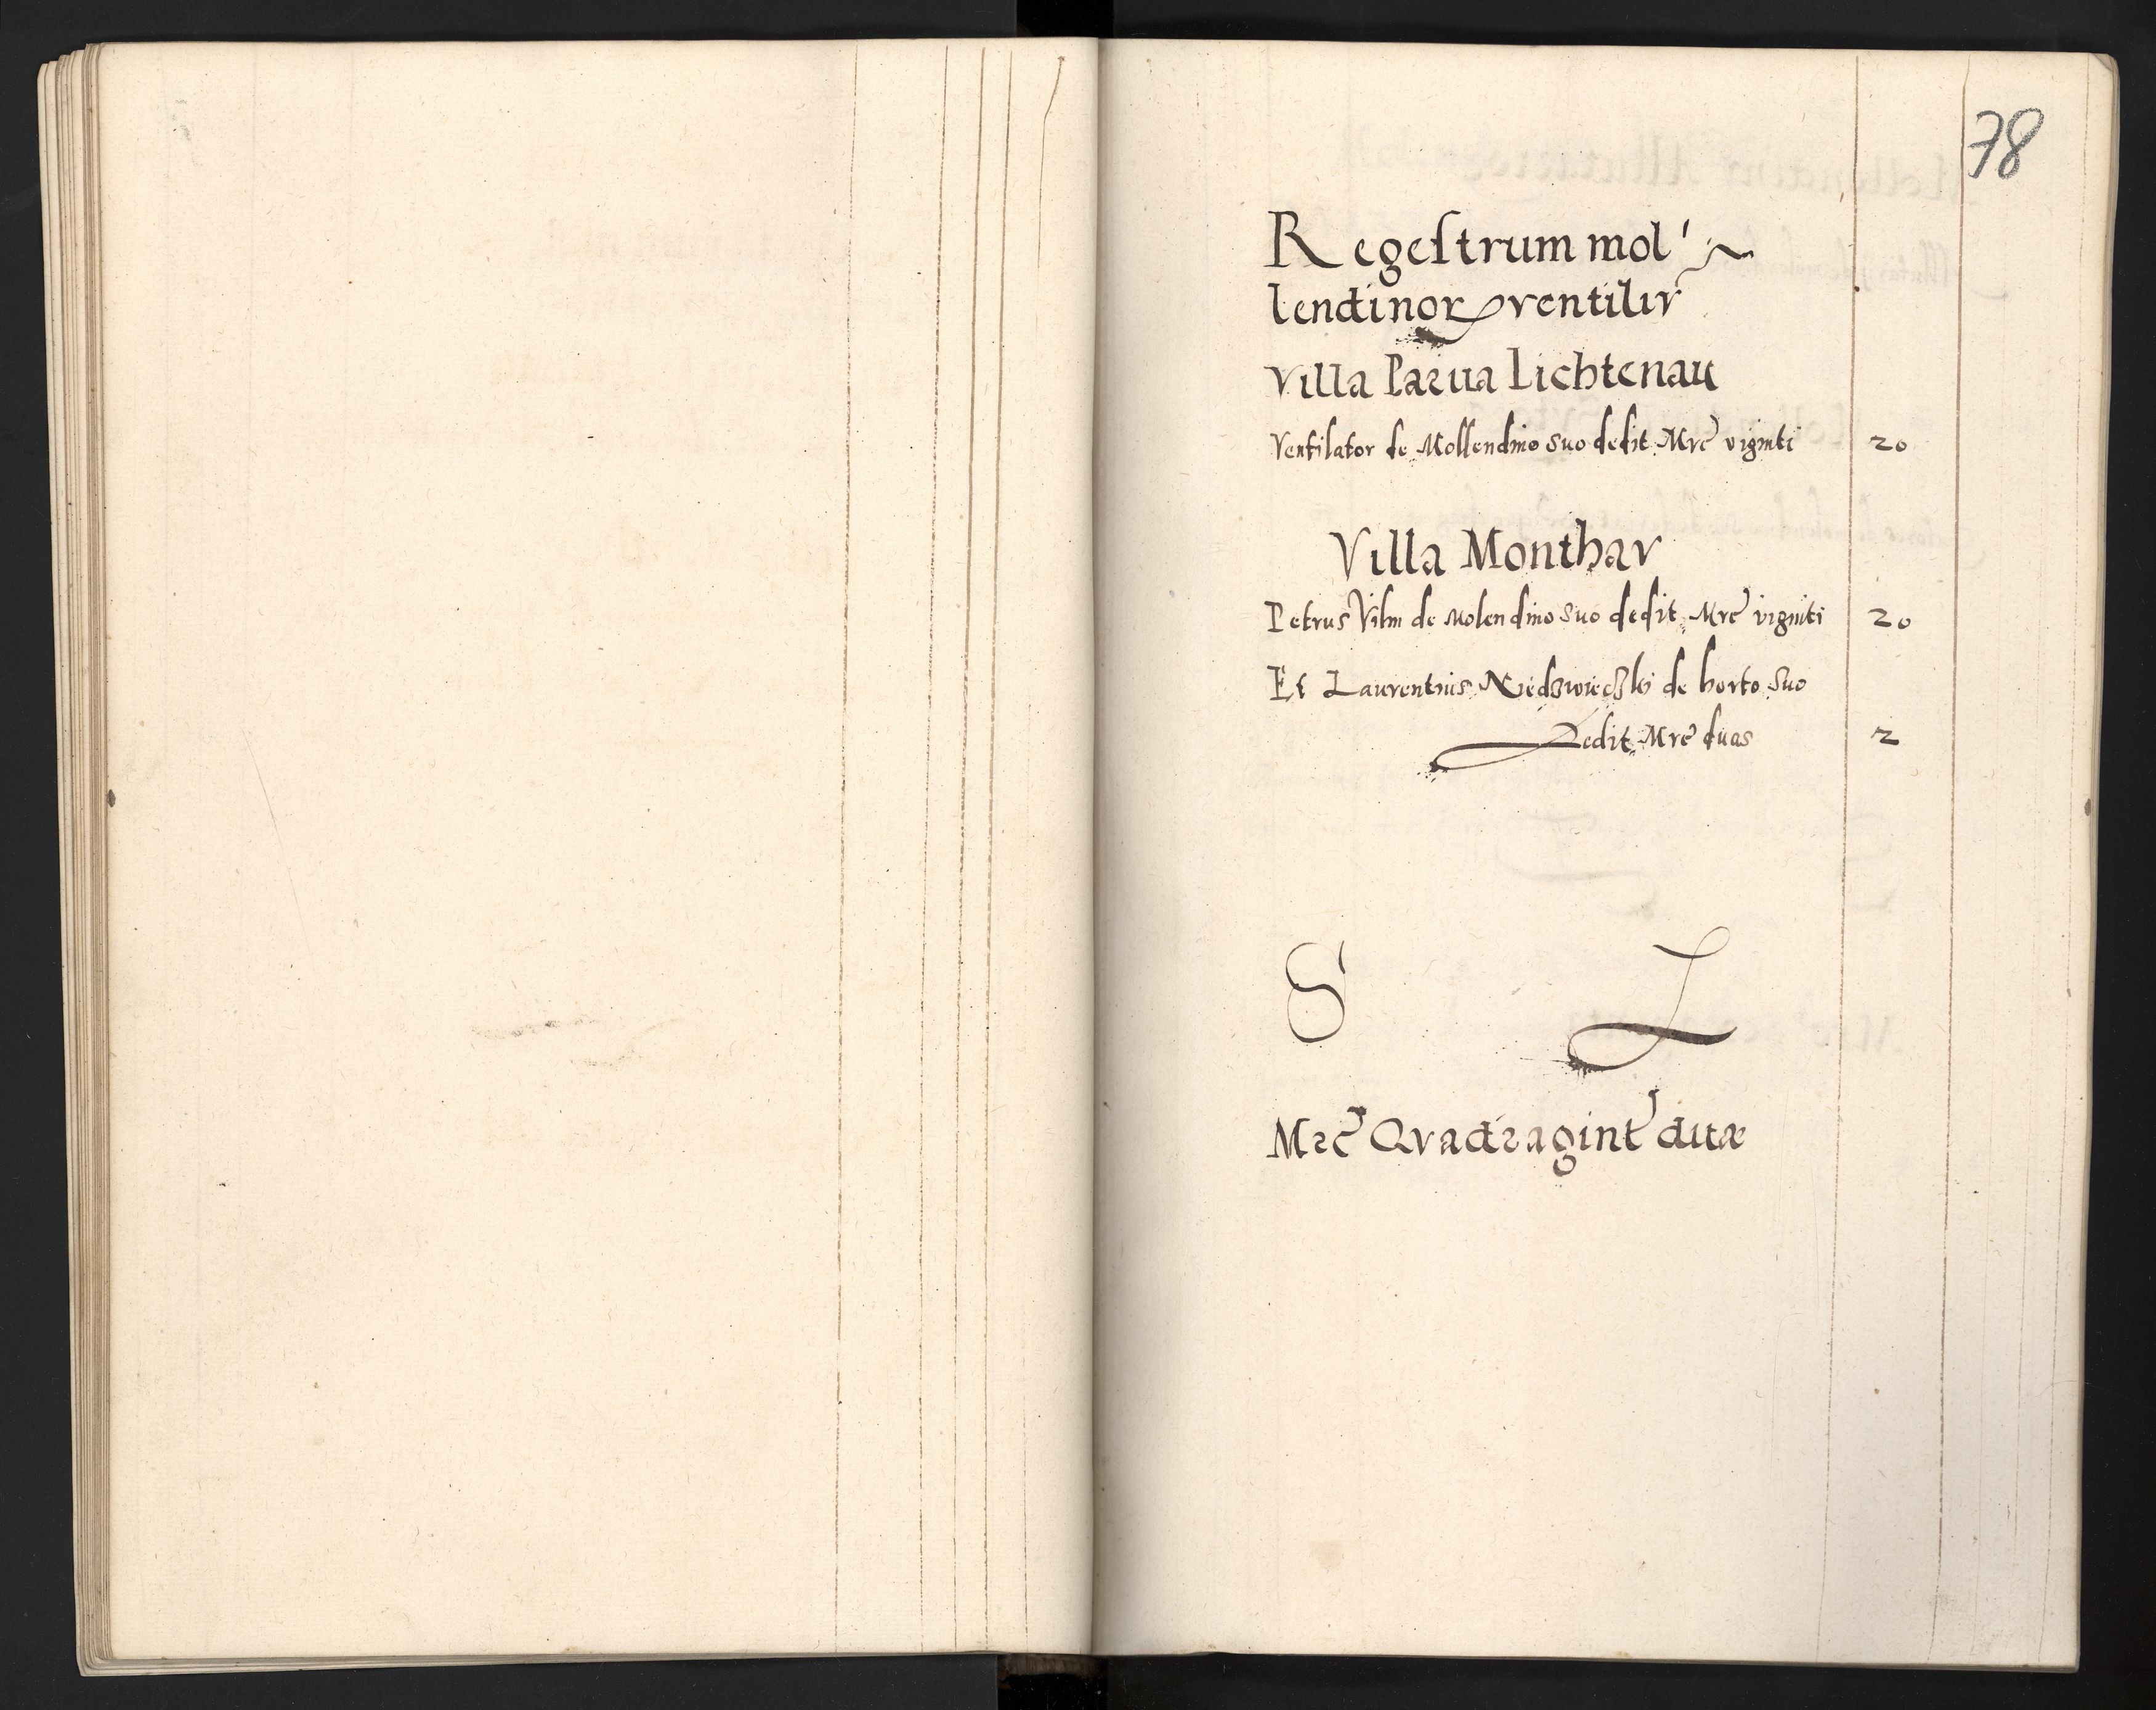 78
Regestrum mol
lendinor ventiliv
Villa Parua Lichtenau
Ventilator de Mollendino suo dedit Mrc viginti 20
Villa Monthav
Petrus Vilm de Molendino suo dedit Mrc viginti 20
Et Laurentius Niedzwieczki de horto suo
dedit Mrc duas 2
S L
Mrc Qvadragint duæ